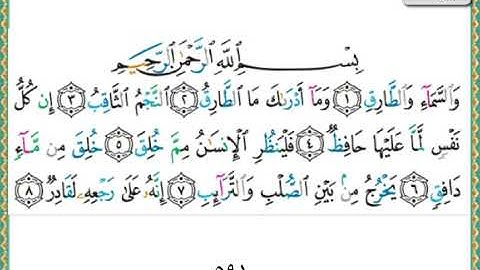 بِسْمِ ٱللَّهِ ٱلرَّحْمَٰنِ ٱلرَّحِيمِ
وَٱلسَّمَآءِ وَٱلطَّارِقِ ١ وَمَآ أَدْرَىٰكَ مَا ٱلطَّارِقُ ٢ ٱلنَّجْمُ ٱلثَّاقِبُ ٣ إِن كُلُّ
نَفْسٍ لَّمَّا عَلَيْهَا حَافِظٌ ٤ فَلْيَنظُرِ ٱلْإِنسَٰنُ مِمَّ خُلِقَ ٥ خُلِقَ مِن مَّآءٍ
دَافِقٍ ٦ يَخْرُجُ مِنۢ بَيْنِ ٱلصُّلْبِ وَٱلتَّرَآئِبِ ٧ إِنَّهُۥ عَلَىٰ رَجْعِهِۦ لَقَادِرٌ ٨